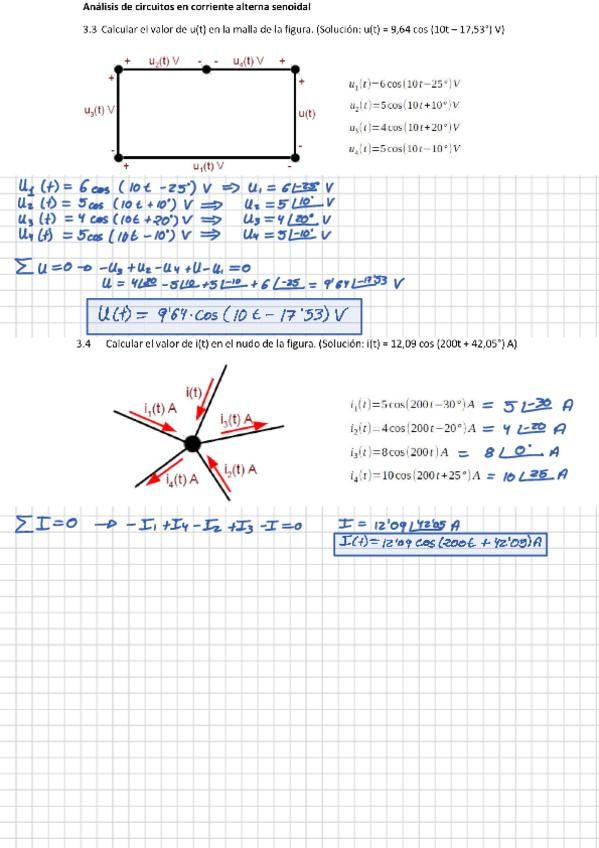 Análisis de circuitos en corriente alterna senoidal
3.3 Calcular el valor de u(t) en la malla de la figura. (Solución: u(t) = 9,64 cos (10t – 17,53°) V)
+ u₂(t) V - - u₄(t) V +
+ +
u₃(t) V u(t)
- -
+ u₁(t) V -
u₁(t)=6cos(10t−25°)V
u₂(t)=5cos(10t+10°)V
u₃(t)=4cos(10t+20°)V
u₄(t)=5cos(10t−10°)V
U₁ (t) = 6 cos (10t - 25°) V ⇒ U₁ = 6∠-25° V
U₂ (t) = 5cos (10t + 10°) V ⇒ U₂ = 5∠10° V
U₃ (t) = 4 cos (10t + 20°) V ⇒ U₃ = 4∠20° V
U₄ (t) = 5cos (10t - 10°) V ⇒ U₄ = 5∠-10° V
∑U=0 → -U₃ + U₂ - U₄ + U - U₁ = 0
U = 4∠20 - 5∠10 + 5∠-10 + 6∠-25 = 9'64∠-17'53 V
U(t) = 9'64·cos (10t - 17'53) V
3.4 Calcular el valor de i(t) en el nudo de la figura. (Solución: i(t) = 12,09 cos (200t + 42,05°) A)
i(t)
i₁(t) A
i₃(t) A
i₄(t) A
i₂(t) A
i₁(t)=5cos(200t−30°)A = 5∠-30 A
i₂(t)=4cos(200t−20°)A = 4∠-20 A
i₃(t)=8cos(200t)A = 8∠0° A
i₄(t)=10cos(200t+25°)A = 10∠25 A
∑I=0 → -I₁ + I₄ - I₂ + I₃ - I = 0
I = 12'09∠42'05 A
I(t) = 12'09 cos (200t + 42'05) A